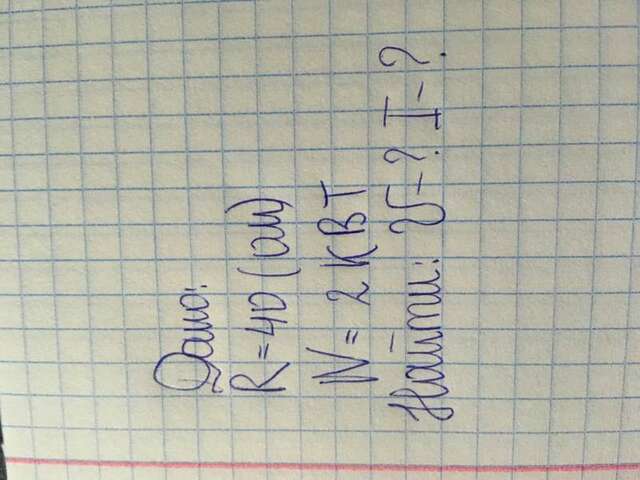 Дано:
R=40 (ом)
N= 2 КВТ
Найти: U-? I-?